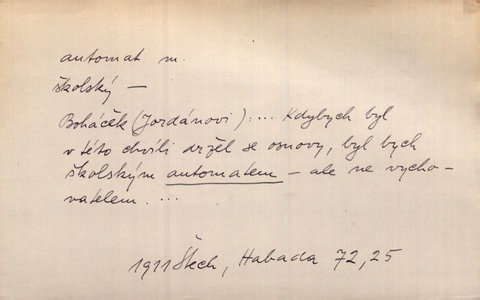 automat m.
školský —
Boháček (Jordánovi): ... Kdybych byl
v této chvíli držel se osnovy, byl bych
školským automatem — ale ne vycho-
vatelem. ...
1911 Štech, Habada 72, 25